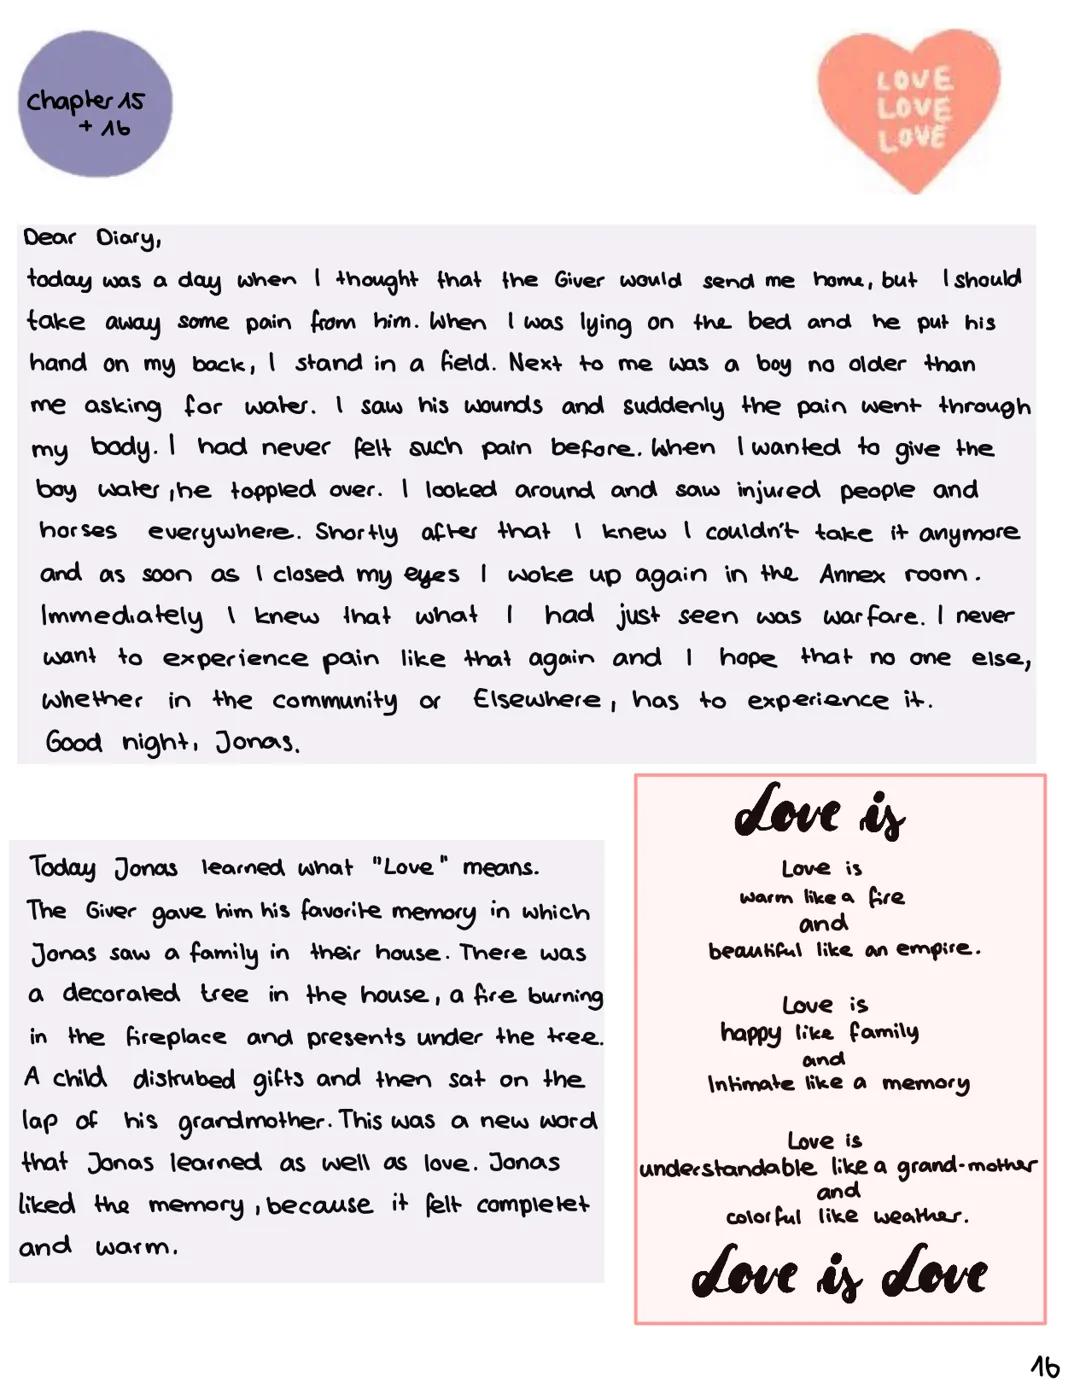 Chapter 15
+ 16
LOVE
LOVE
LOVE
Dear Diary,
today was a day when I thought that the Giver would send me home, but I should
take away some pain from him. When I was lying on the bed and he put his
hand on my back, I stand in a field. Next to me was a boy no older than
me asking for water. I saw his wounds and suddenly the pain went through
my body. I had never felt such pain before. When I wanted to give the
boy water, he toppled over. I looked around and saw injured people and
horses everywhere. Shortly after that I knew I couldn't take it anymore
and as soon as I closed my eyes I woke up again in the Annex room.
Immediately I knew that what I had just seen was warfare. I never
want to experience pain like that again and I hope that no one else,
whether in the community or Elsewhere, has to experience it.
Good night, Jonas.
Today Jonas learned what "Love" means.
The Giver gave him his favorite memory in which
Jonas saw a family in their house. There was
a decorated tree in the house, a fire burning
in the fireplace and presents under the tree.
A child distrubed gifts and then sat on the
lap of his grandmother. This was a new word
that Jonas learned as well as love. Jonas
liked the memory, because it felt completet
and warm.
Love is
Love is
warm like a fire
and
beautiful like an empire.
Love is
happy like family
and
Intimate like a memory
Love is
understandable like a grand-mother
and
colorful like weather.
Love is Love
16